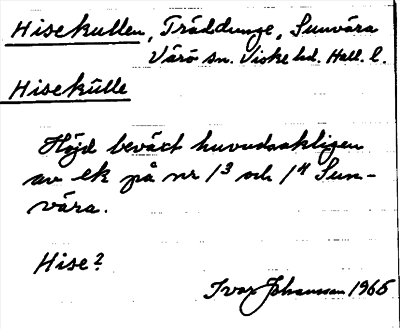 Hisekullen, Träddunge, Sunvära
Värö sn. Viske hd. Hall. l.
Hisekulle
Höjd beväxt huvudsakligen
av ek på nr 1³ och 1⁴ Sun-
vära.
Hise?
Ivar Johansson 1965